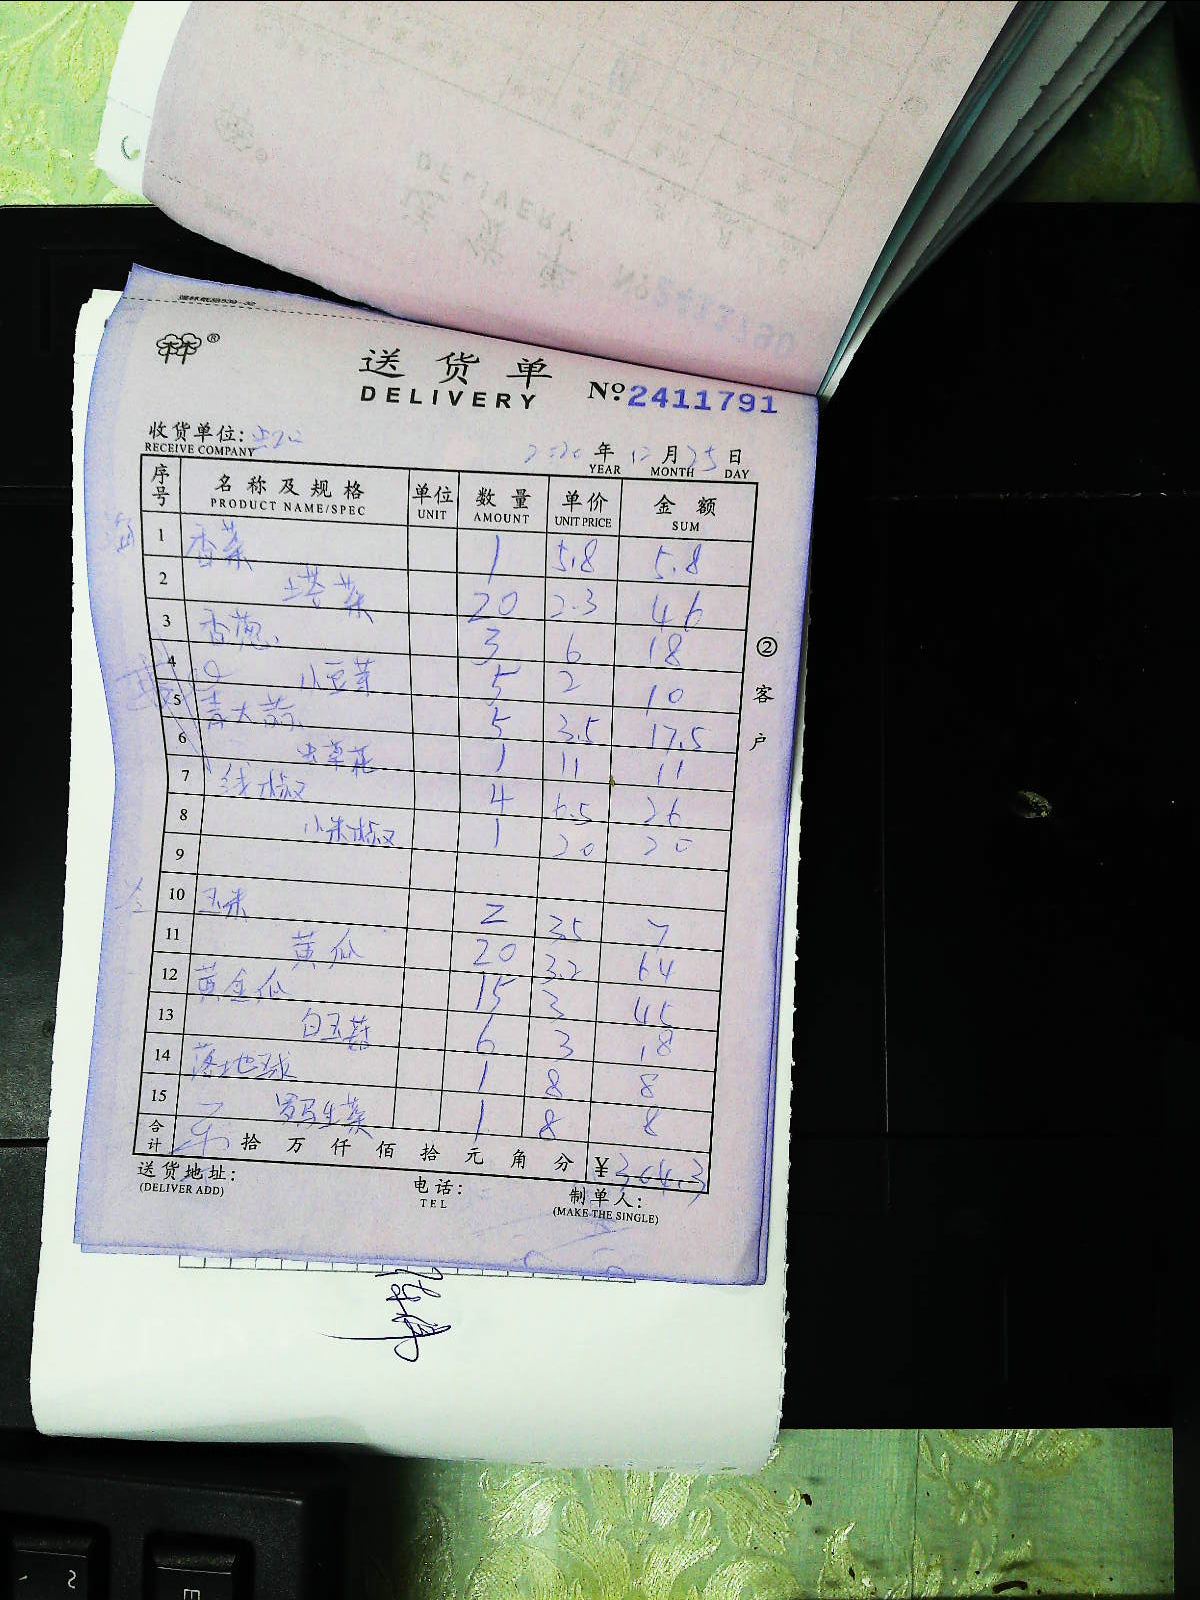 送货单
DELIVERY
№:2411791
收货单位:
RECEIVE COMPANY
2020年12月25日
YEAR MONTH DAY
序号 名称及规格 单位 数量 单价 金额
PRODUCT NAME/SPEC UNIT AMOUNT UNIT PRICE SUM
1 香菜 1 5.8 5.8
2 塔菜 20 2.3 46
3 香葱 3 6 18
4 小豆芽 5 2 10
5 青大蒜 5 3.5 17.5
6 虫草花 1 11 11
7 线椒 4 6.5 26
8 小米椒 1 20 20
9
10 玉米 2 35 7
11 黄瓜 20 3.2 64
12 黄金瓜 15 3 45
13 白玉菇 6 3 18
14 落地球 1 8 8
15 罗马生菜 1 8 8
合计 拾万仟佰拾元角分 ¥304.3
送货地址: 电话: 制单人:
(DELIVER ADD) TEL (MAKE THE SINGLE)
②客户